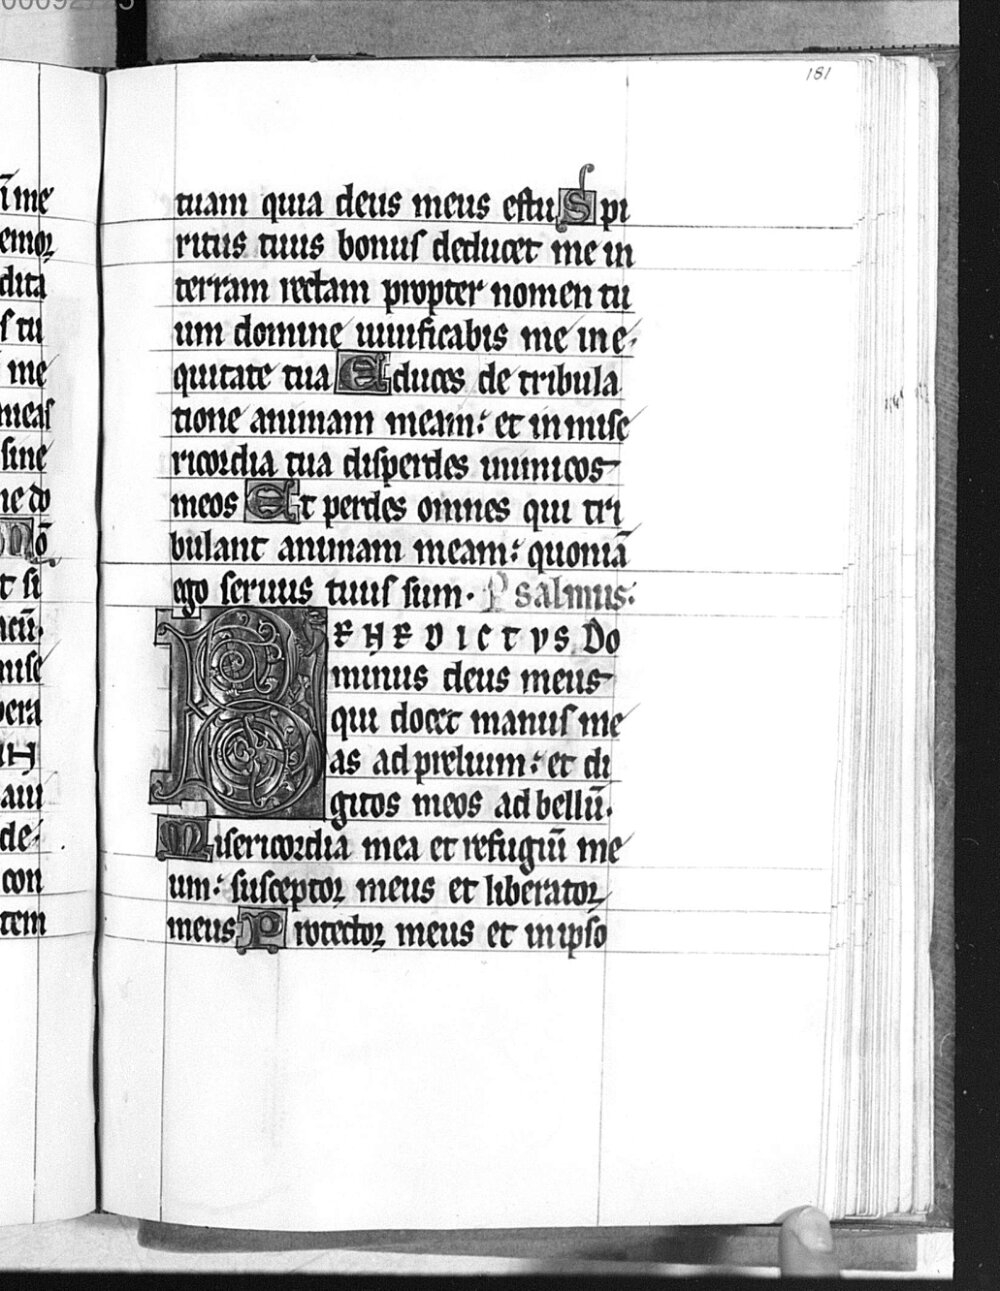 181
tuam quia deus meus estu Spi
ritus tuus bonus deducet me in
terram rectam propter nomen tu
um domine uiuificabis me in e
quitate tua Educes de tribula
tione animam meam: et in mise
ricordia tua disperdes inimicos
meos Et perdes omnes qui tri
bulant animam meam: quoniā
ego seruus tuus sum. Psalmus:
BENEDICTVS Do
minus deus meus
qui docet manus me
as ad prelium: et di
gitos meos ad bellū.
Misericordia mea et refugiū me
um: susceptor meus et liberator
meus Protector meus et in ipso
ī me
emor
dita
s tu
me
meas
sine
ne do
nō
t si
acū.
mise
pera
de
con
tem